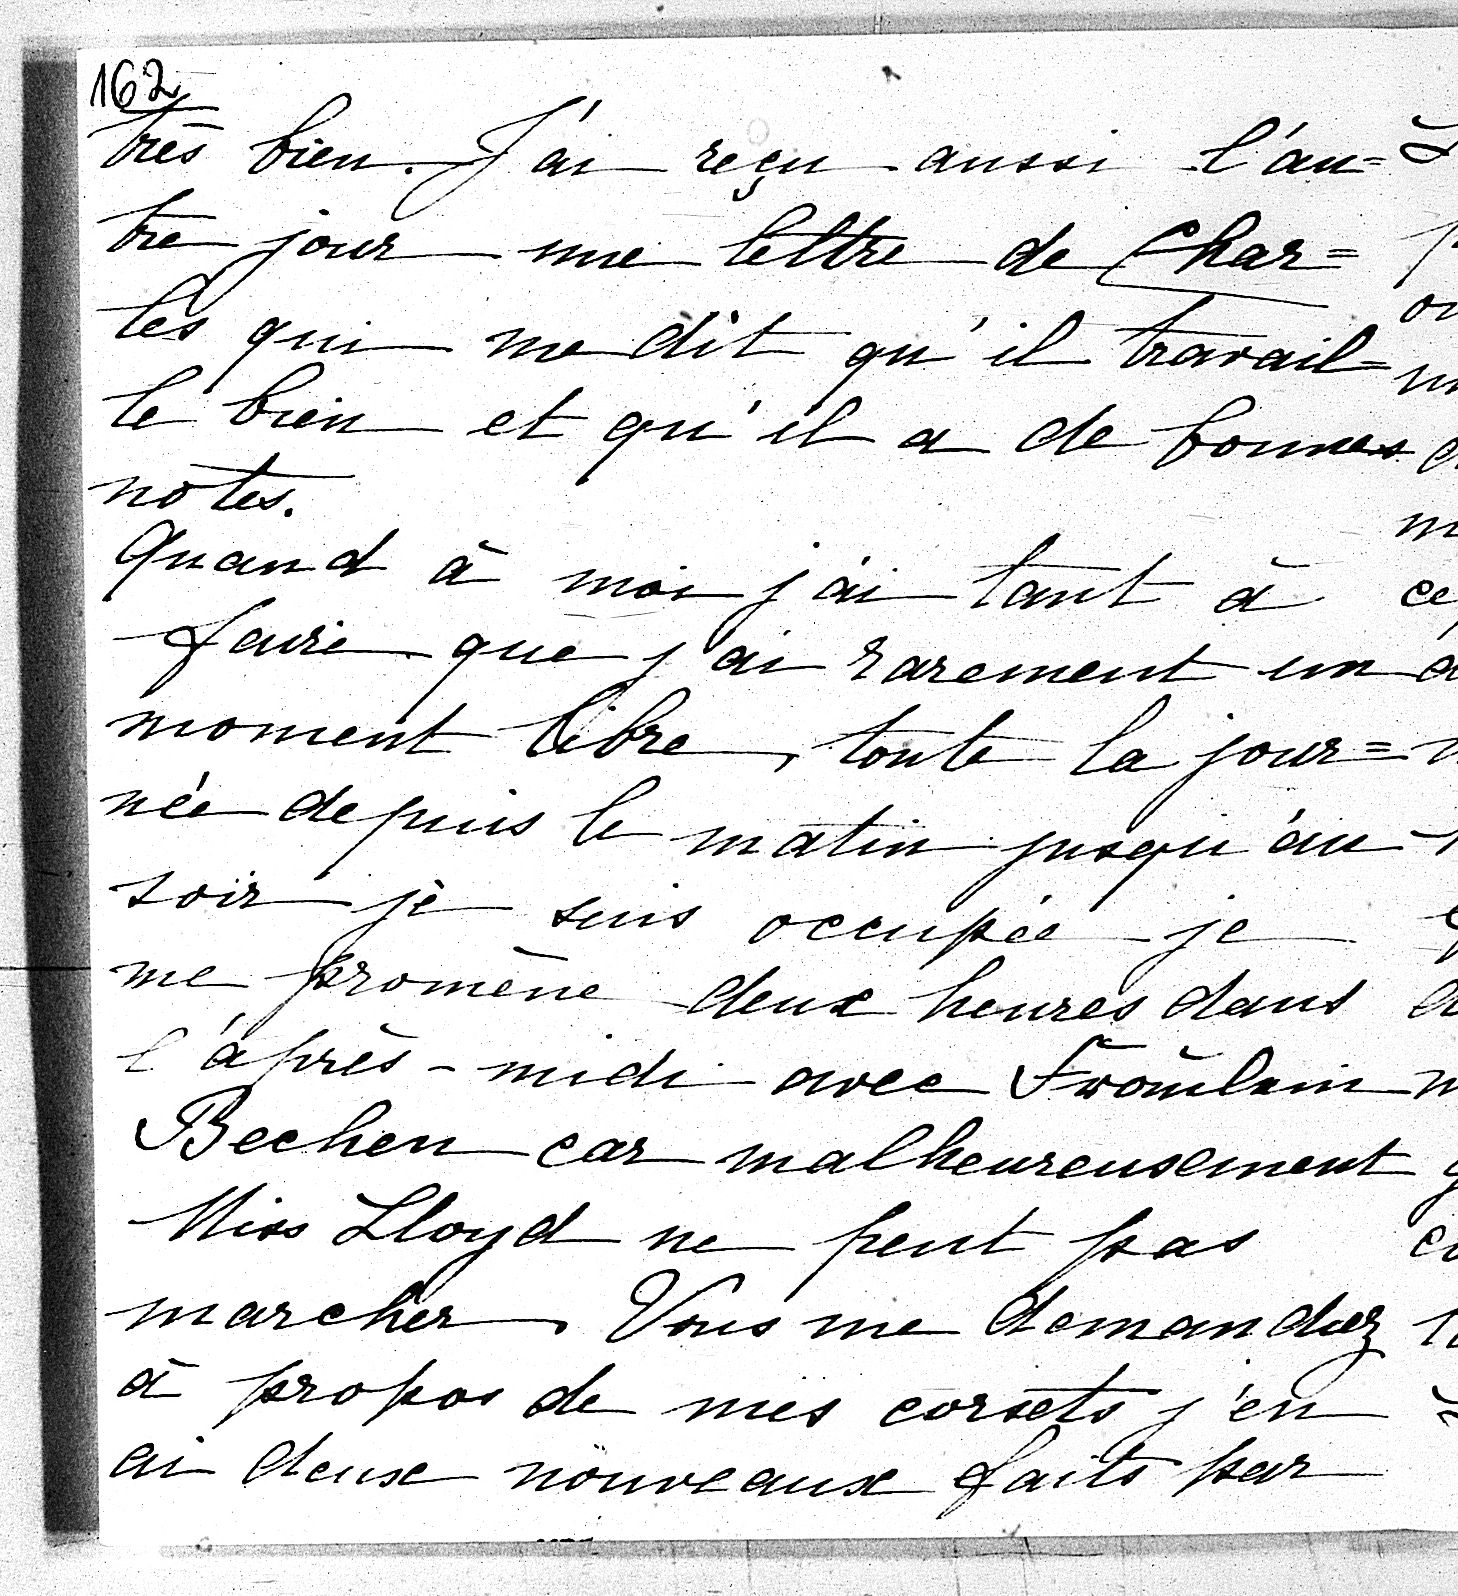 162
très bien. J'ai reçu aussi l'au=
tre jour une lettre de Char=
les qui me dit qu'il travail=
le bien et qu'il a de bonnes
notes.
Quand à moi j'ai tant à
faire que j'ai rarement un
moment libre, toute la jour=
née depuis le matin jusqu'au
soir je suis occupée je
me promène deux heures dans
l'après-midi avec Froüilein
Bechen car malheureusement
Miss Lloyd ne peut pas
marcher. Vous me demandez
à propos de mes corsets j'en
ai deux nouveaux faits par